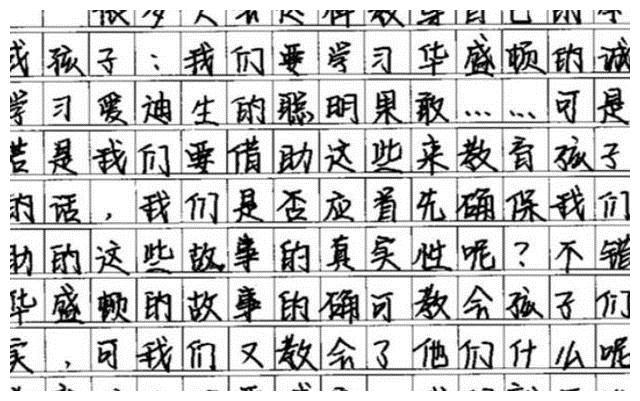 很多人在这样教导自己的
孩子：我们要学习华盛顿的诚
学习爱迪生的聪明果敢……可是
若是我们要借助这些来教育孩子
的话，我们是否应首先确保我们
助的这些故事的真实性呢？不错
华盛顿的故事的确可教会孩子们
实，可我们又教会了他们什么呢